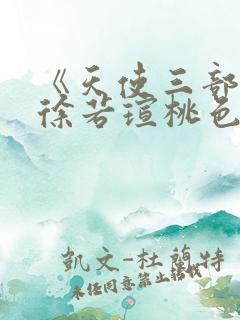 《天使三部
徐若瑄桃色
凱文-杜蘭特
未经同意禁止转载